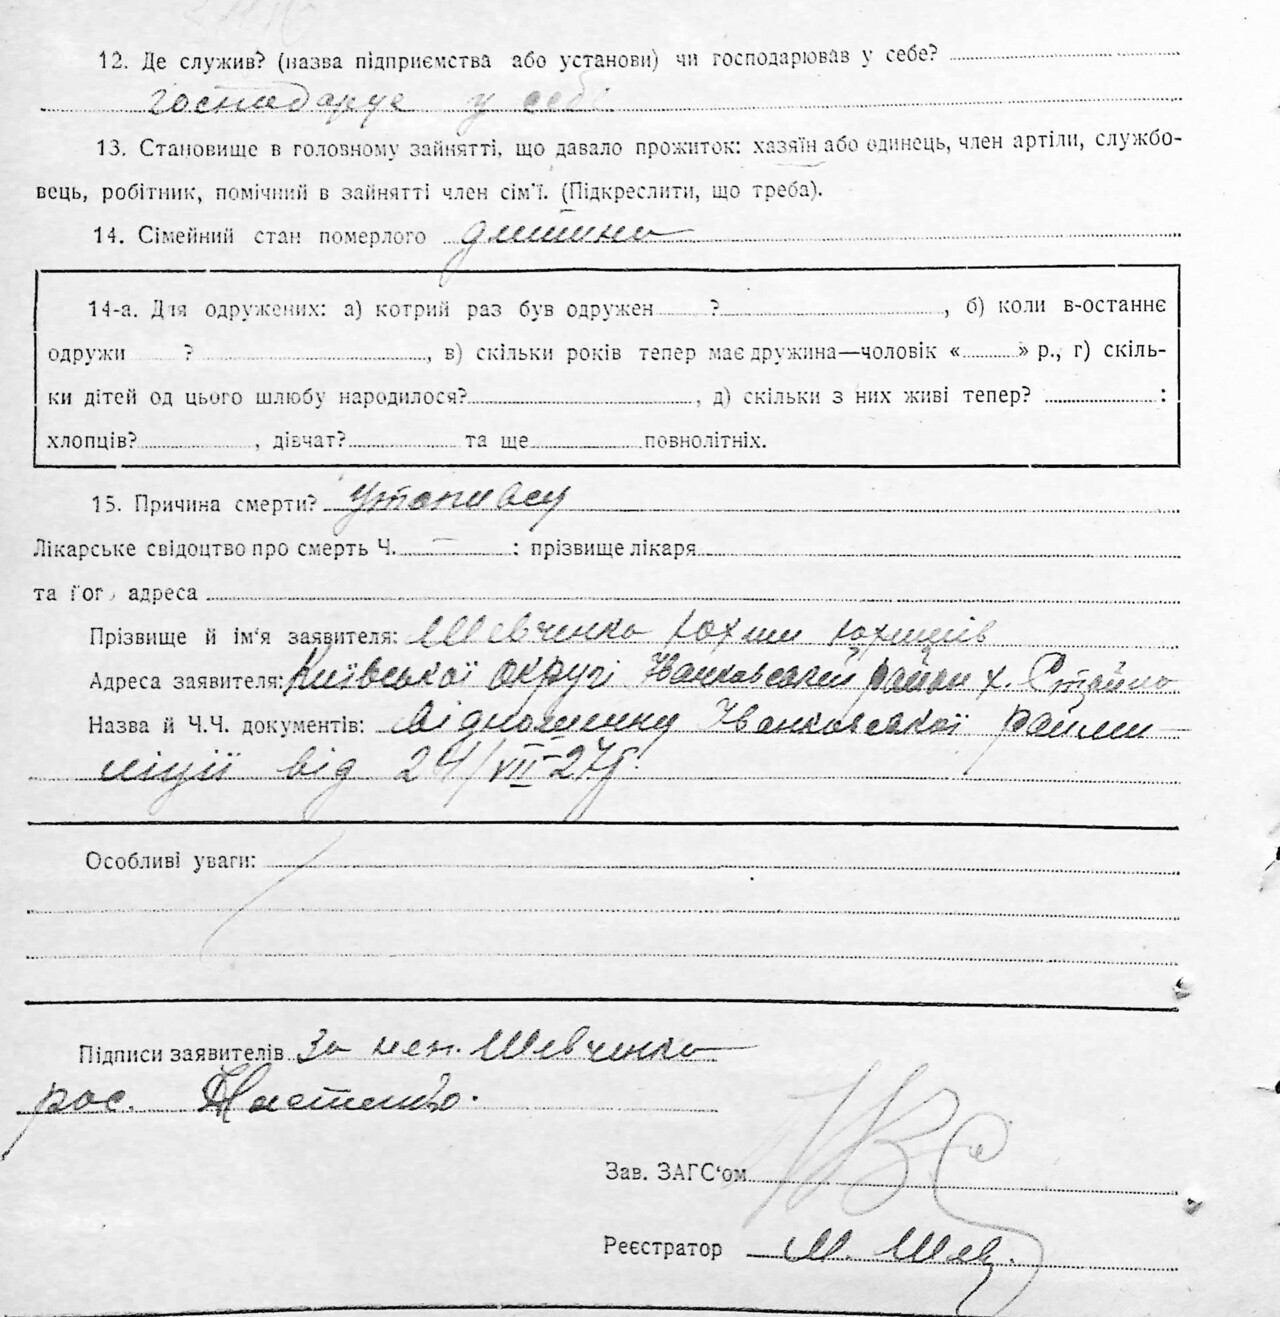 12. Де служив? (назва підприємства або установи) чи господарював у себе?
господарує у себі
13. Становище в головному зайнятті, що давало прожиток: хазяїн або одинець, член артіли, службо-
вець, робітник, помічний в зайнятті член сім'ї. (Підкреслити, що треба).
14. Сімейний стан померлого дитина
14-а. Для одружених: а) котрий раз був одружен ? , б) коли в-останнє
одружи ? , в) скільки років тепер має дружина—чоловік « » р., г) скіль-
ки дітей од цього шлюбу народилося? , д) скільки з них живі тепер? :
хлопців? , дівчат? та ще повнолітніх.
15. Причина смерти? утопився
Лікарське свідоцтво про смерть Ч. — : прізвище лікаря
та його адреса
Прізвище й ім'я заявителя: Шевченко Юхим Юхимів
Адреса заявителя: Київської округі Іванковський район х.
Назва й Ч.Ч. документів: Відношення Іванковської райми-
ліції від 24/VII-27р.
Особливі уваги:
Підписи заявителів за неп. Шевченко
рос.
Зав. ЗАГС'ом
Реєстратор М. Шев.